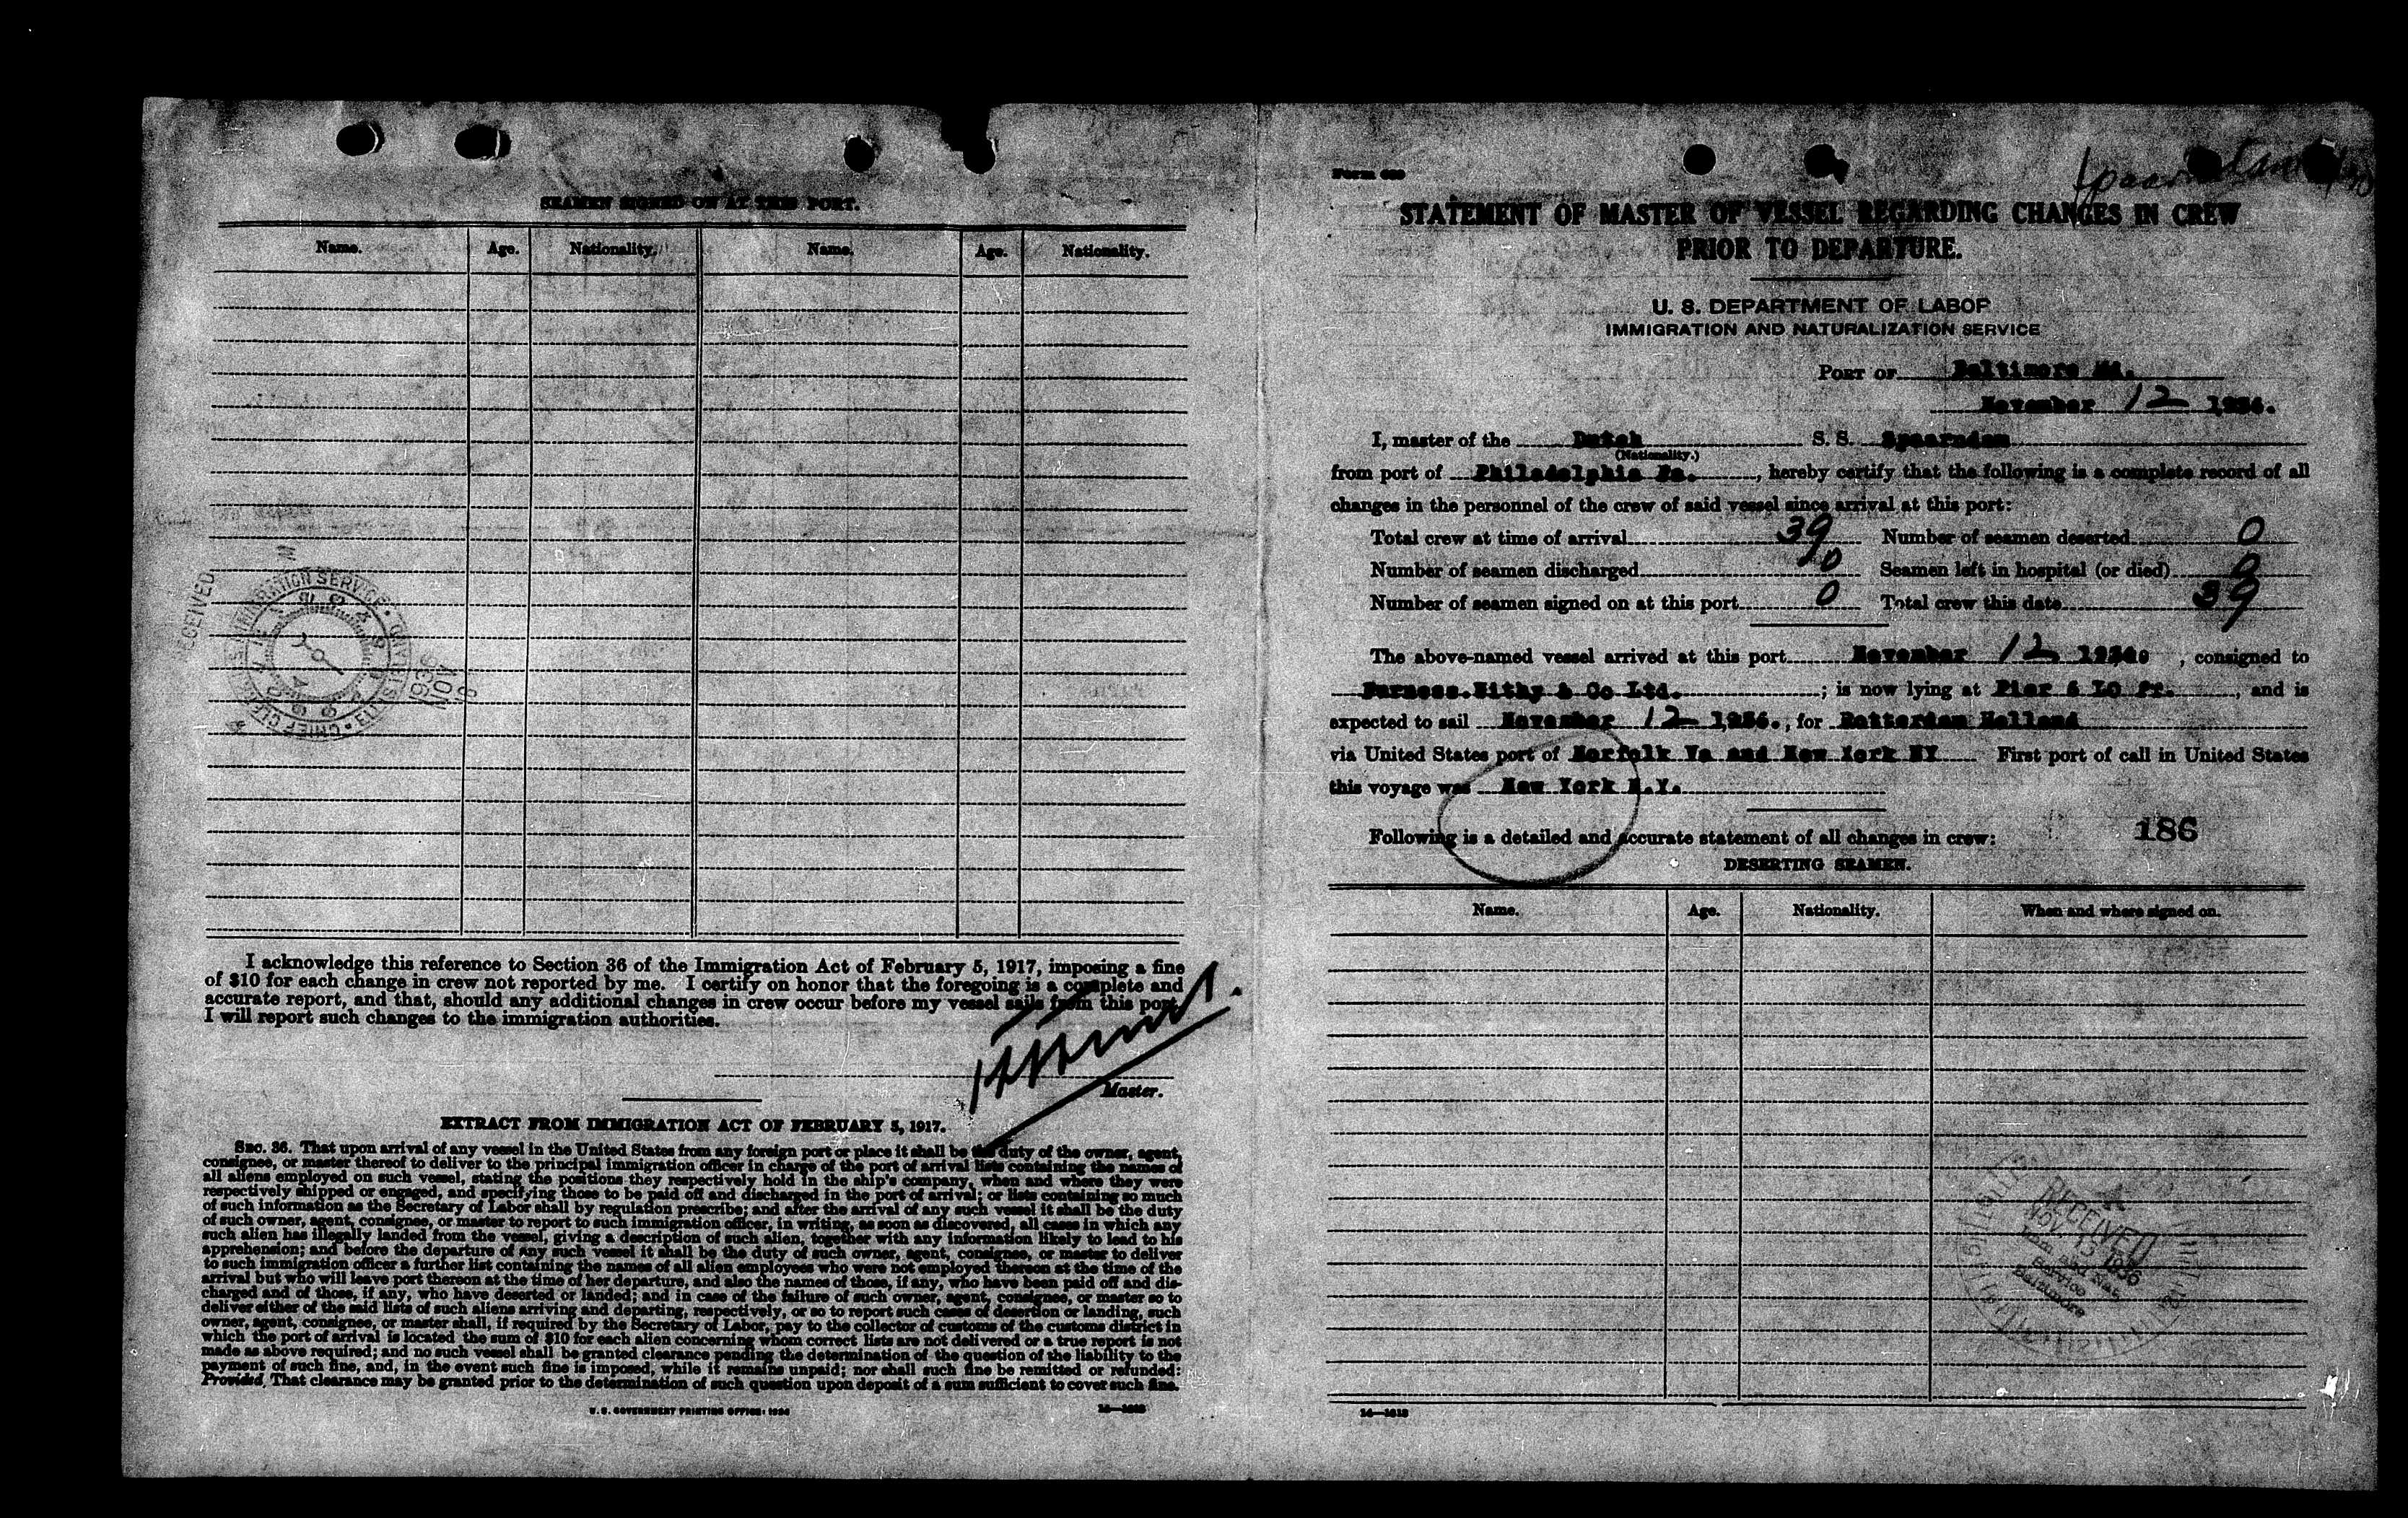 SEAMEN SIGNED ON AT THIS PORT.
Name. Age. Nationality. Name. Age. Nationality.
RECEIVED
1936 NOV
I acknowledge this reference to Section 36 of the Immigration Act of February 5, 1917, imposing a fine
of $10 for each change in crew not reported by me. I certify on honor that the foregoing is a complete and
accurate report, and that, should any additional changes in crew occur before my vessel sails from this port,
I will report such changes to the immigration authorities.
Master.
EXTRACT FROM IMMIGRATION ACT OF FEBRUARY 5, 1917.
SEC. 36. That upon arrival of any vessel in the United States from any foreign port or place it shall be the duty of the owner, agent,
consignee, or master thereof to deliver to the principal immigration officer in charge of the port of arrival lists containing the names of
all aliens employed on such vessel, stating the positions they respectively hold in the ship's company, when and where they were
respectively shipped or engaged, and specifying those to be paid off and discharged in the port of arrival; or lists containing so much
of such information as the Secretary of Labor shall by regulation prescribe; and after the arrival of any such vessel it shall be the duty
of such owner, agent, consignee, or master to report to such immigration officer, in writing, as soon as discovered, all cases in which any
such alien has illegally landed from the vessel, giving a description of such alien, together with any information likely to lead to his
apprehension; and before the departure of any such vessel it shall be the duty of such owner, agent, consignee, or master to deliver
to such immigration officer a further list containing the names of all alien employees who were not employed thereon at the time of the
arrival but who will leave port thereon at the time of her departure, and also the names of those, if any, who have been paid off and dis-
charged and of those, if any, who have deserted or landed; and in case of the failure of such owner, agent, consignee, or master so to
deliver either of the said lists of such aliens arriving and departing, respectively, or so to report such cases of desertion or landing, such
owner, agent, consignee, or master shall, if required by the Secretary of Labor, pay to the collector of customs of the customs district in
which the port of arrival is located the sum of $10 for each alien concerning whom correct lists are not delivered or a true report is not
made as above required; and no such vessel shall be granted clearance pending the determination of the question of the liability to the
payment of such fine, and, in the event such fine is imposed, while it remains unpaid; nor shall such fine be remitted or refunded:
Provided, That clearance may be granted prior to the determination of such question upon deposit of a sum sufficient to cover such fine.
U. S. GOVERNMENT PRINTING OFFICE: 1934
Form
STATEMENT OF MASTER OF VESSEL REGARDING CHANGES IN CREW
PRIOR TO DEPARTURE.
U. S. DEPARTMENT OF LABOR
IMMIGRATION AND NATURALIZATION SERVICE
PORT OF Baltimore Md.
November 12 1936.
I, master of the Dutch S. S. Spaarndam
(Nationality.)
from port of Philadelphia Pa., hereby certify that the following is a complete record of all
changes in the personnel of the crew of said vessel since arrival at this port:
Total crew at time of arrival 39 Number of seamen deserted 0
Number of seamen discharged 0 Seamen left in hospital (or died) 0
Number of seamen signed on at this port 0 Total crew this date 39
The above-named vessel arrived at this port November 12 1936 , consigned to
Furness.Withy & Co Ltd. ; is now lying at Pier 6 LO Pt. , and is
expected to sail November 12 1936., for Rotterdam Holland
via United States port of Norfolk Va and New York NY First port of call in United States
this voyage was New York N.Y.
Following is a detailed and accurate statement of all changes in crew: 186
DESERTING SEAMEN.
Name. Age. Nationality. When and where signed on.
RECEIVED
NOV 13 1936
Imm and Nat.
Service
Baltimore